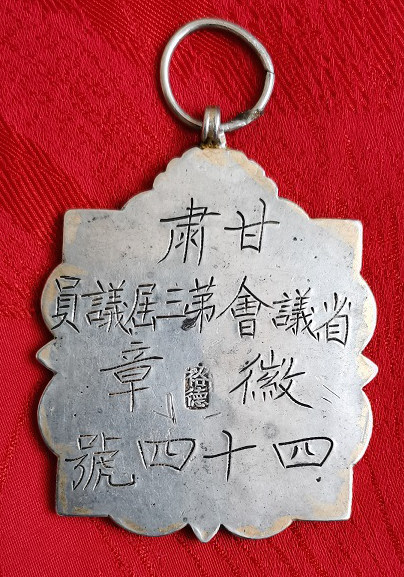 甘肅
省議會第三屆議員
徽章
四十四號